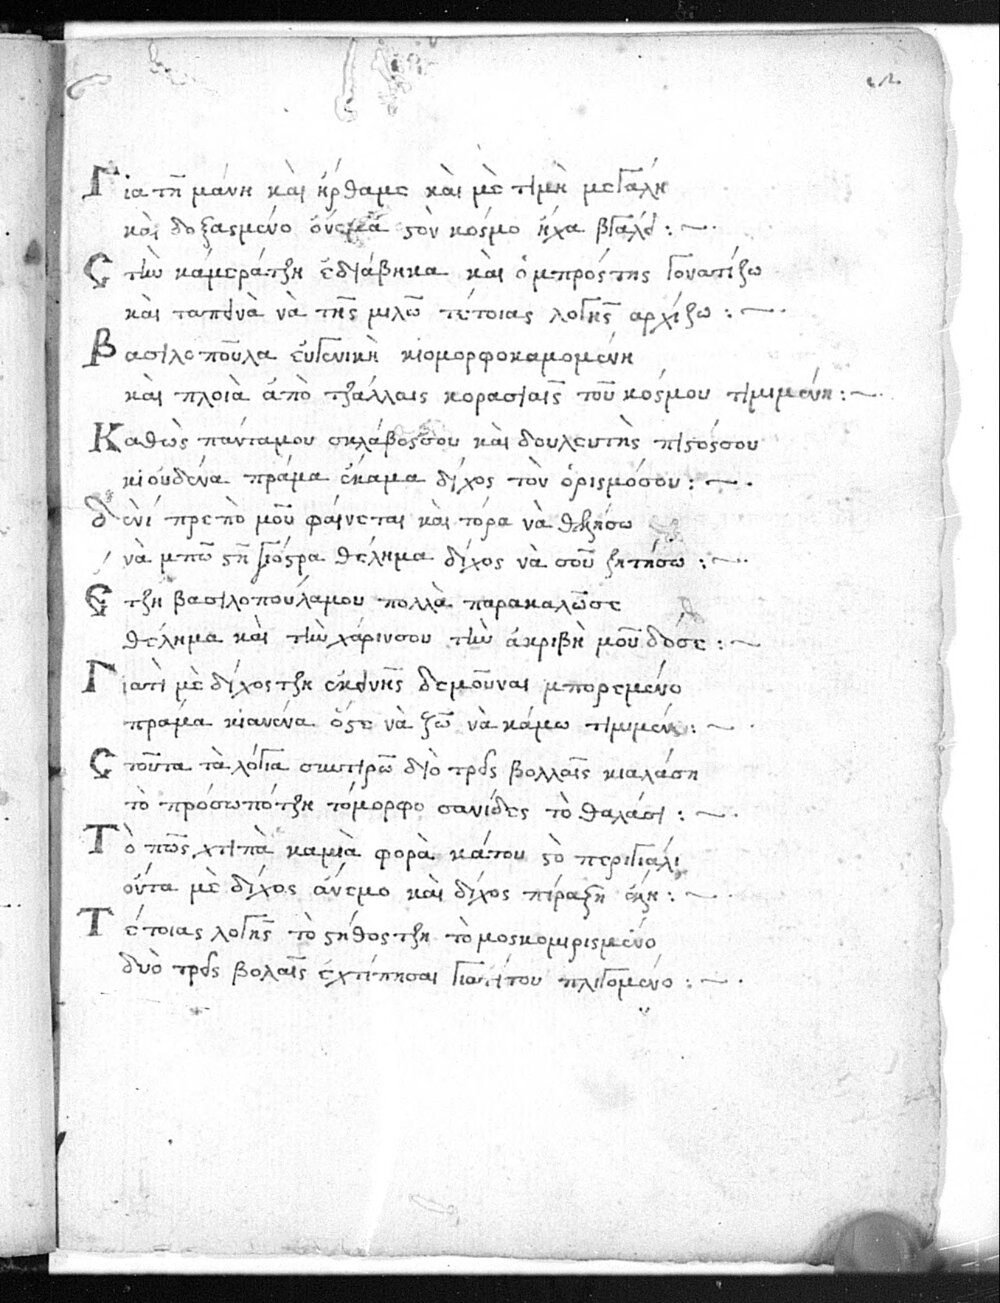 Γιατὴ μάνη καὶ ἤρθαμε καὶ μὲ τιμὴ μεγάλη
καὶ δοξασμένο ὄνεμα στὸν κόσμο ἤχα βγάλει :~
Στὴν κάμεράτζη ἐδιάβηκα καὶ ὀμπρόςτης γονατίζω
καὶ ταπεινὰ νὰ τῆς μιλῶ τέτοιας λογῆς ἀρχίζω :~
Βασιλοπούλα εὐγενικὴ κιομορφοκαμομένη
καὶ πλοιὰ ἀπὸ τζάλλαις κορασιαῖς τοῦ κόσμου τιμιμένη :~
Καθὼς πάνταμου σκλάβοςσου καὶ δουλευτὴς πιστόςσου
κιοὐδένα πράμα ἔκαμα δίχος τὸν ὁρισμόσου :~
δὲνὶ πρεπὸ μοῦ φαίνεται καὶ τόρα νὰ θελήσω
νὰ μπῶ στὴ γιόστρα θέλημα δίχος νὰ σοῦ ζητήσω :~
Ἔτζη βασιλοπούλαμου πολλὰ παρακαλῶσε
θέλημα καὶ τὴν χάρινσου τὴν ἀκριβὴ μοῦ δόσε :~
Γιατὶ μὲ δίχοςτζη ἐκεινῆς δεμοῦναι μπορεμένο
πράμα κιανένα ὅστε νὰ ζῶ νὰ κάμω τιμιμένο :~
Στοῦτα τὰ λόγια συντηρῶ διὸ τρεῖς βολλαῖς κιαλάση
τὸ πρόσωπότζη τόμορφο σανίδες τὸ θαλάσσι :~
Τὸ πῶς χτιπὰ καμιὰ φορὰ κάπου στὸ περιγιάλι
ὅντα μὲ δίχος ἄνεμο καὶ δίχος πείραξη
Τέτοιας λογῆς τὸ στήθοςτζη τὸ μοσκομιρισμένο
δυὸ τρεῖς βολαῖς ἐχτίπησαι γιατίτου πλιγομένο :~